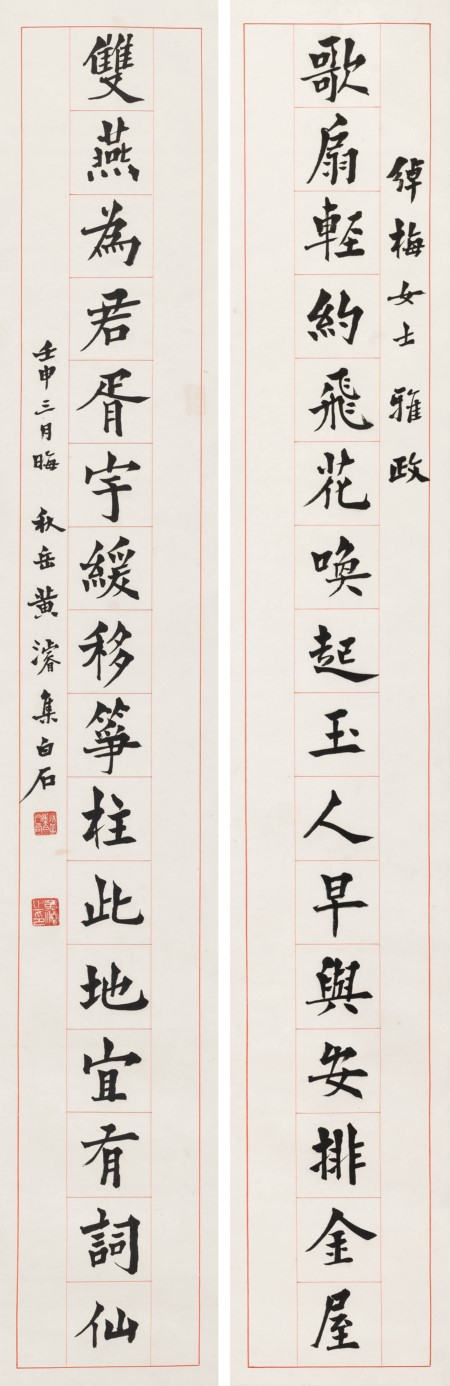 綽梅女士 雅政
歌扇輕約飛花喚起玉人早與安排金屋
雙燕為君胥宇緩移箏柱此地宜有詞仙
壬申三月晦 秋岳黃濬集白石